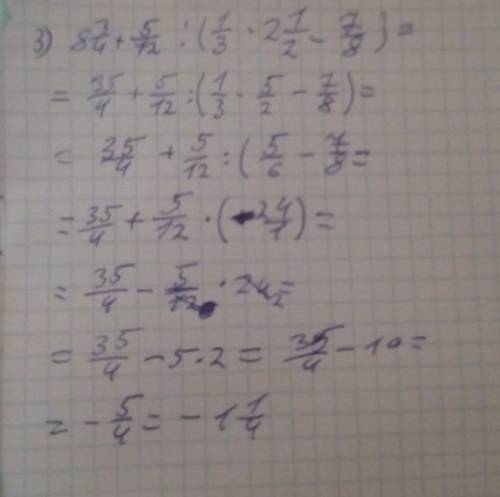 3) 8 3/4 + 5/12 : (1/3 · 2 1/2 - 7/8) =
= 35/4 + 5/12 : (1/3 · 5/2 - 7/8) =
= 35/4 + 5/12 : (5/6 - 7/8 =
= 35/4 + 5/12 · (-24/1) =
= 35/4 - 5/12 · 24 =
= 35/4 - 5·2 = 35/4 - 10 =
= - 5/4 = - 1 1/4